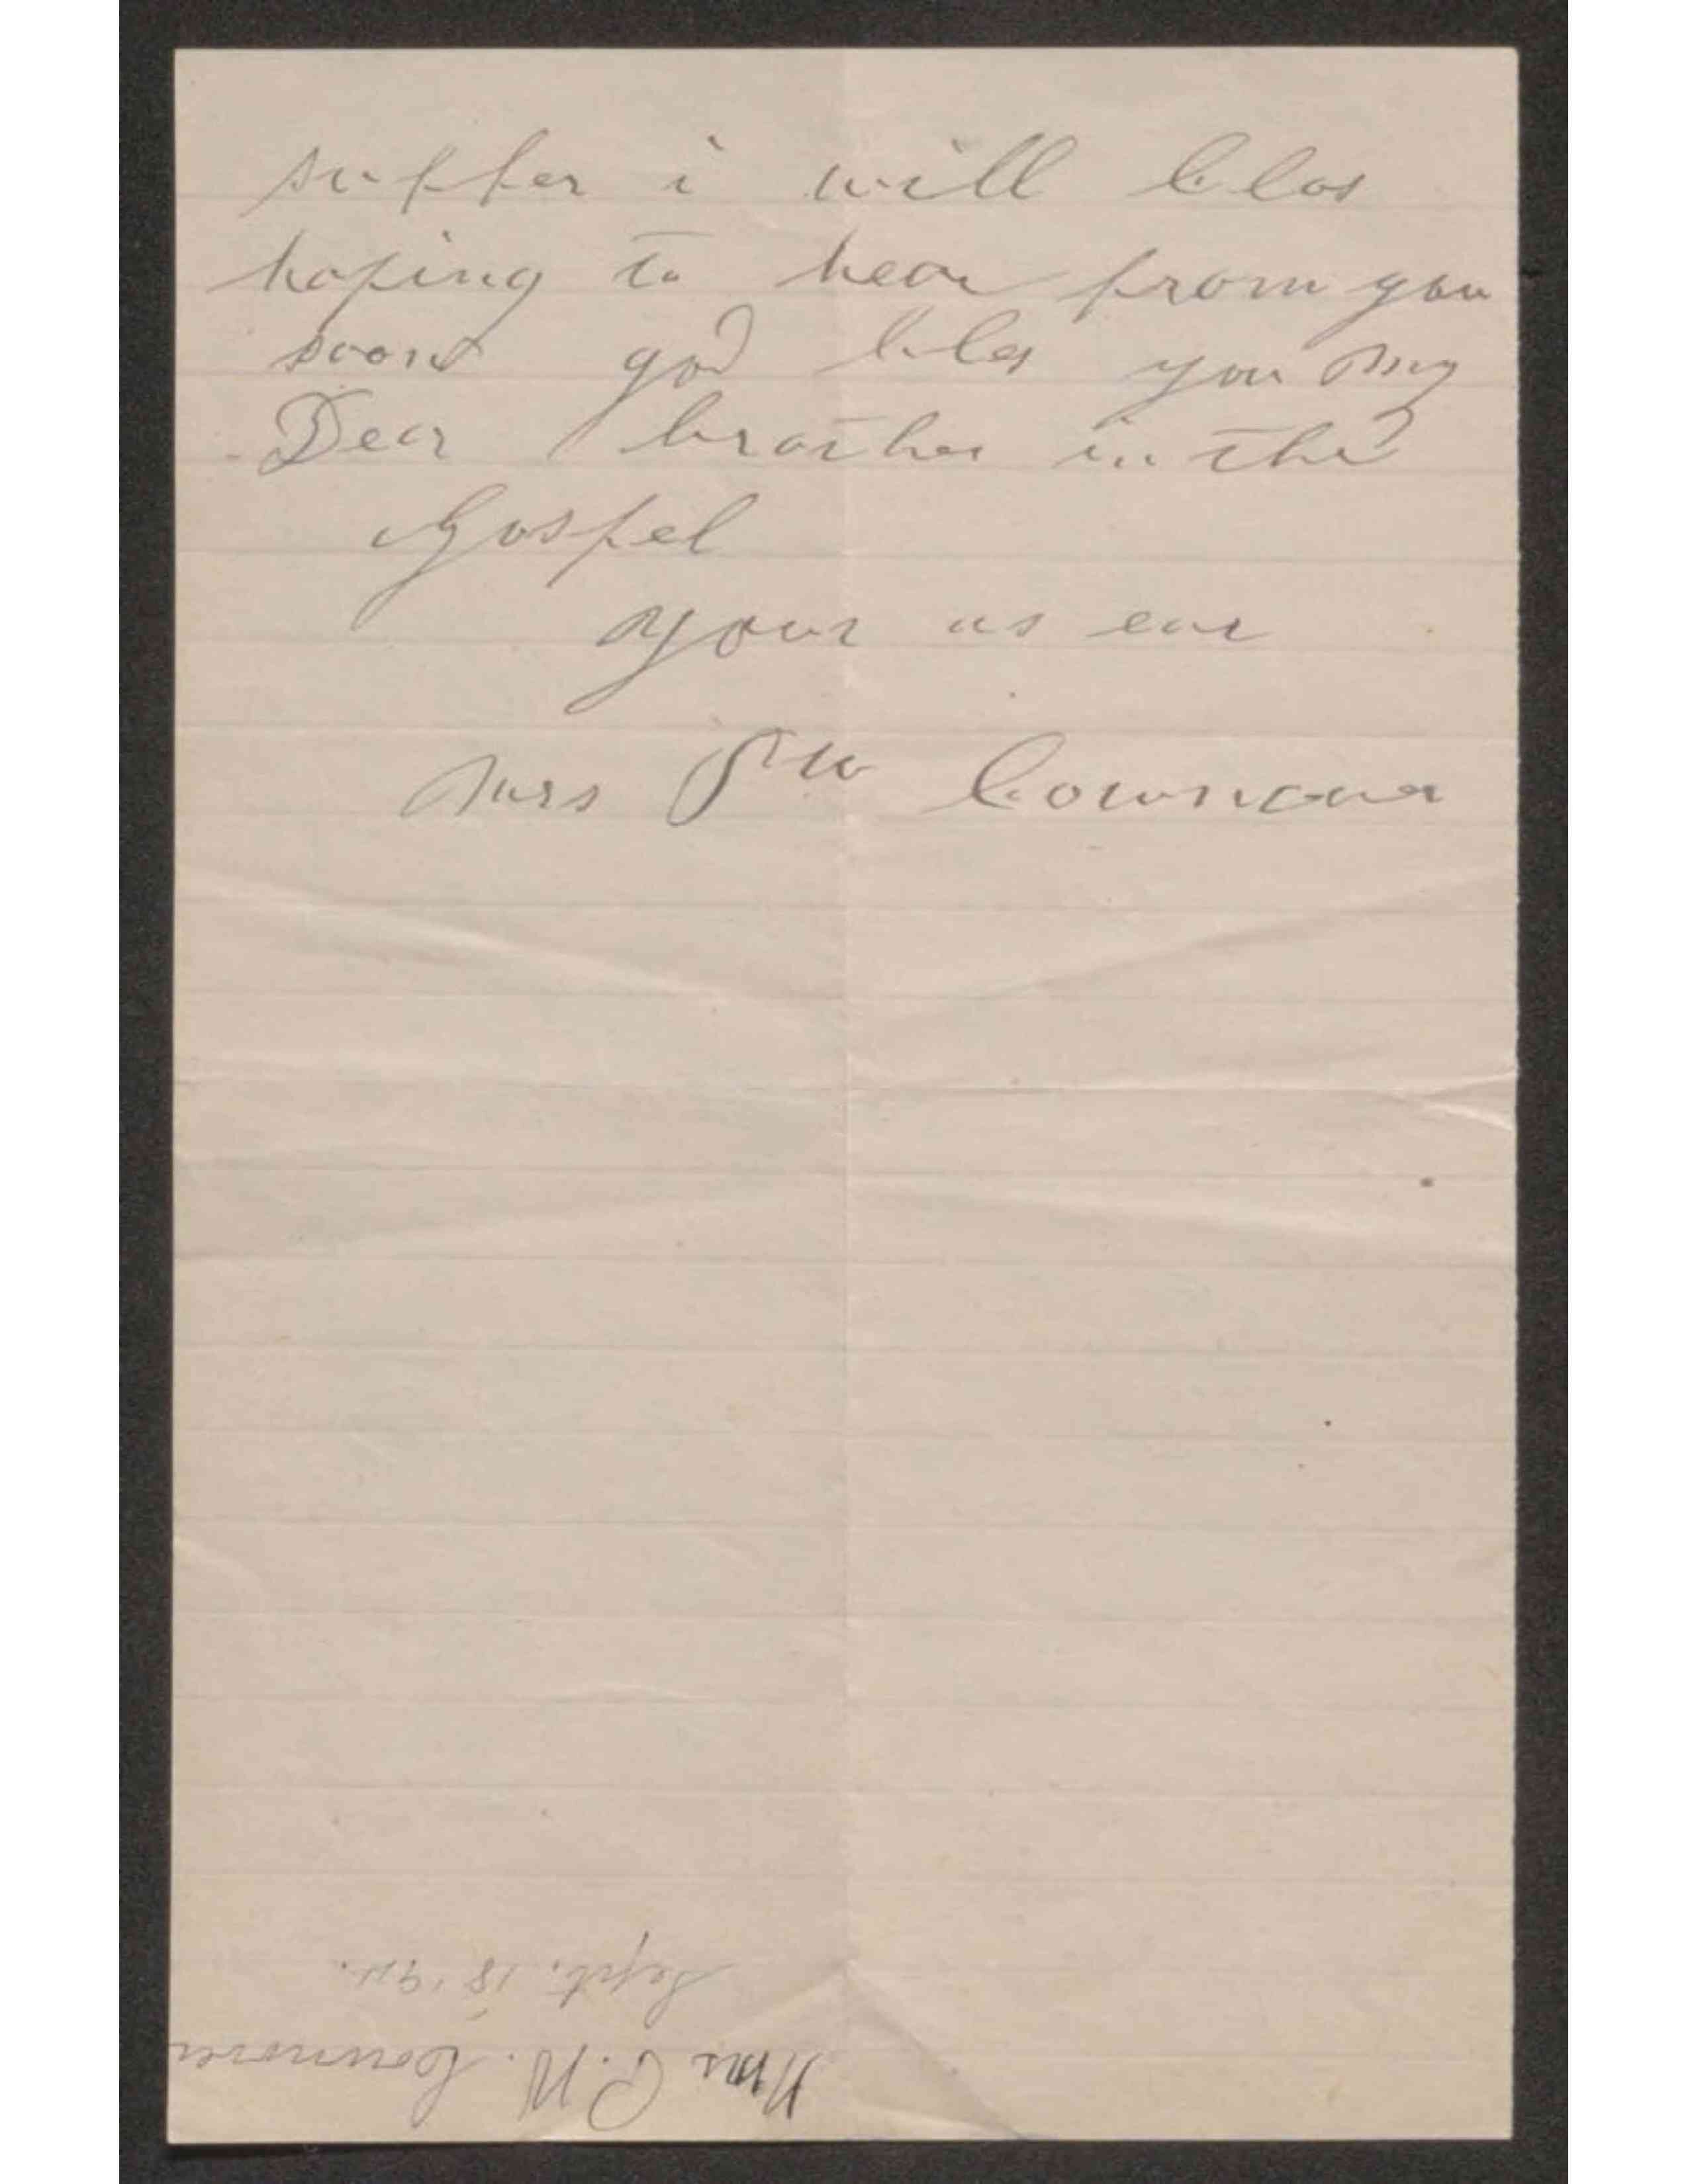 suffer i will clos
hoping to hear from you
soon god bles you my
Dear brother in the
Gospel
your as ear
Mrs P W Cownover
Mrs P. W. Connover
Sept. 18